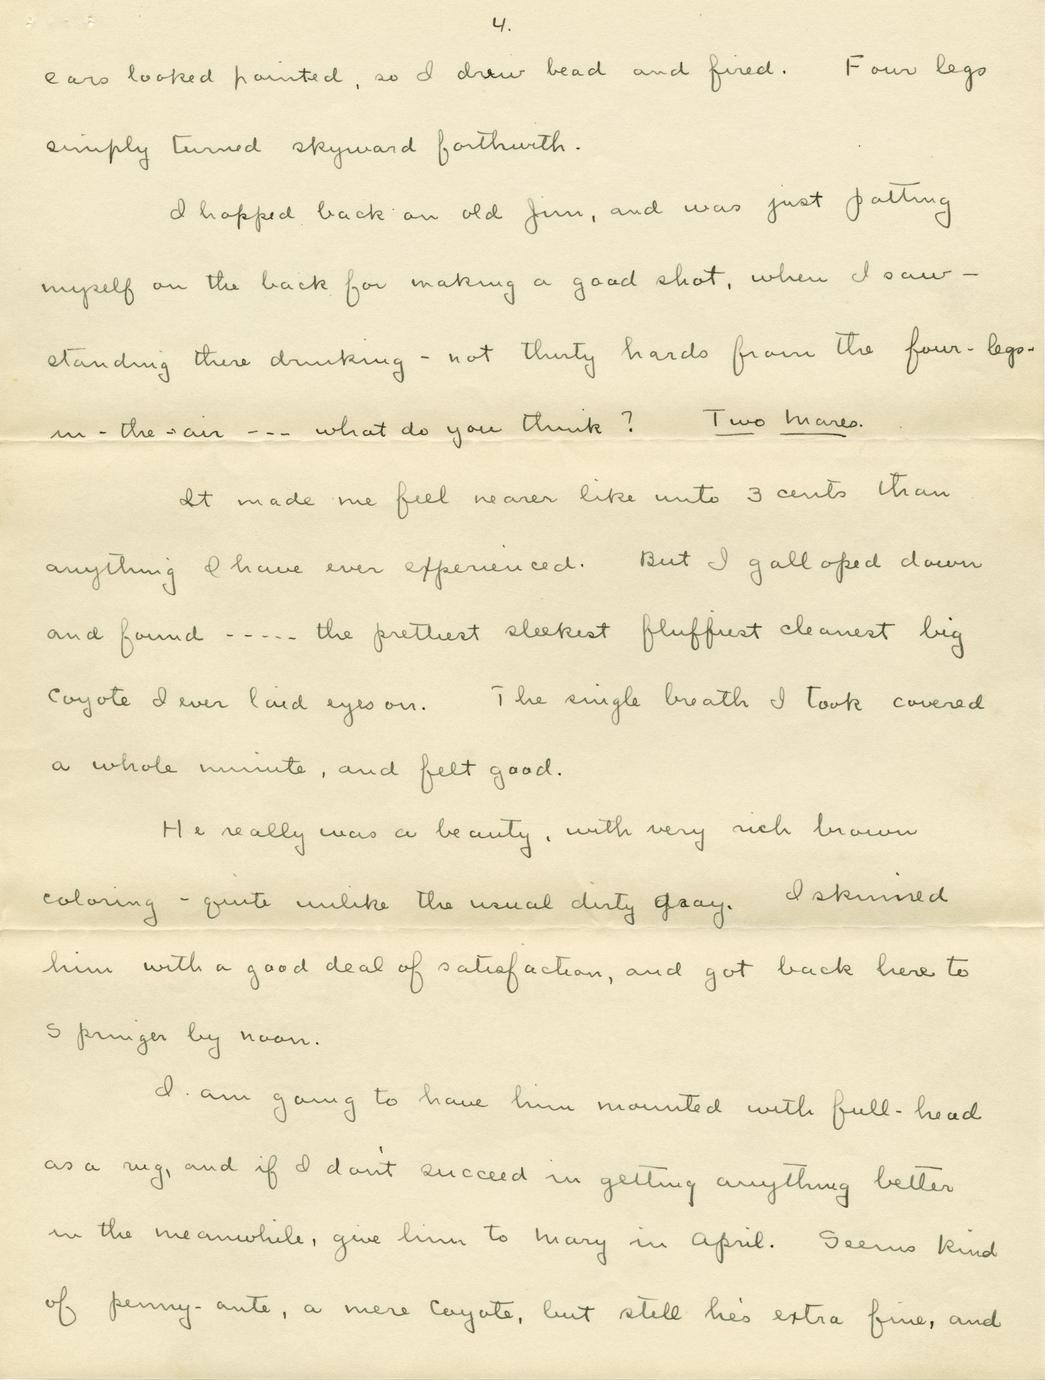 4.
ears looked pointed, so I drew bead and fired. Four legs
simply turned skyward forthwith.
I hopped back on old Jim, and was just patting
myself on the back for making a good shot, when I saw -
standing there drinking - not thirty hards from the four-legs-
in-the-air --- what do you think? Two Mares.
It made me feel nearer like unto 3 cents than
anything I have ever experienced. But I galloped down
and found ----- the prettiest sleekest fluffiest cleanest big
Coyote I ever laid eyes on. The single breath I took covered
a whole minute, and felt good.
He really was a beauty, with very rich brown
coloring - quite unlike the usual dirty gray. I skinned
him with a good deal of satisfaction, and got back here to
Springer by noon.
I am going to have him mounted with full-head
as a rug, and if I don't succeed in getting anything better
in the meanwhile, give him to Mary in April. Seems kind
of penny-ante, a mere Coyote, but still he's extra fine, and